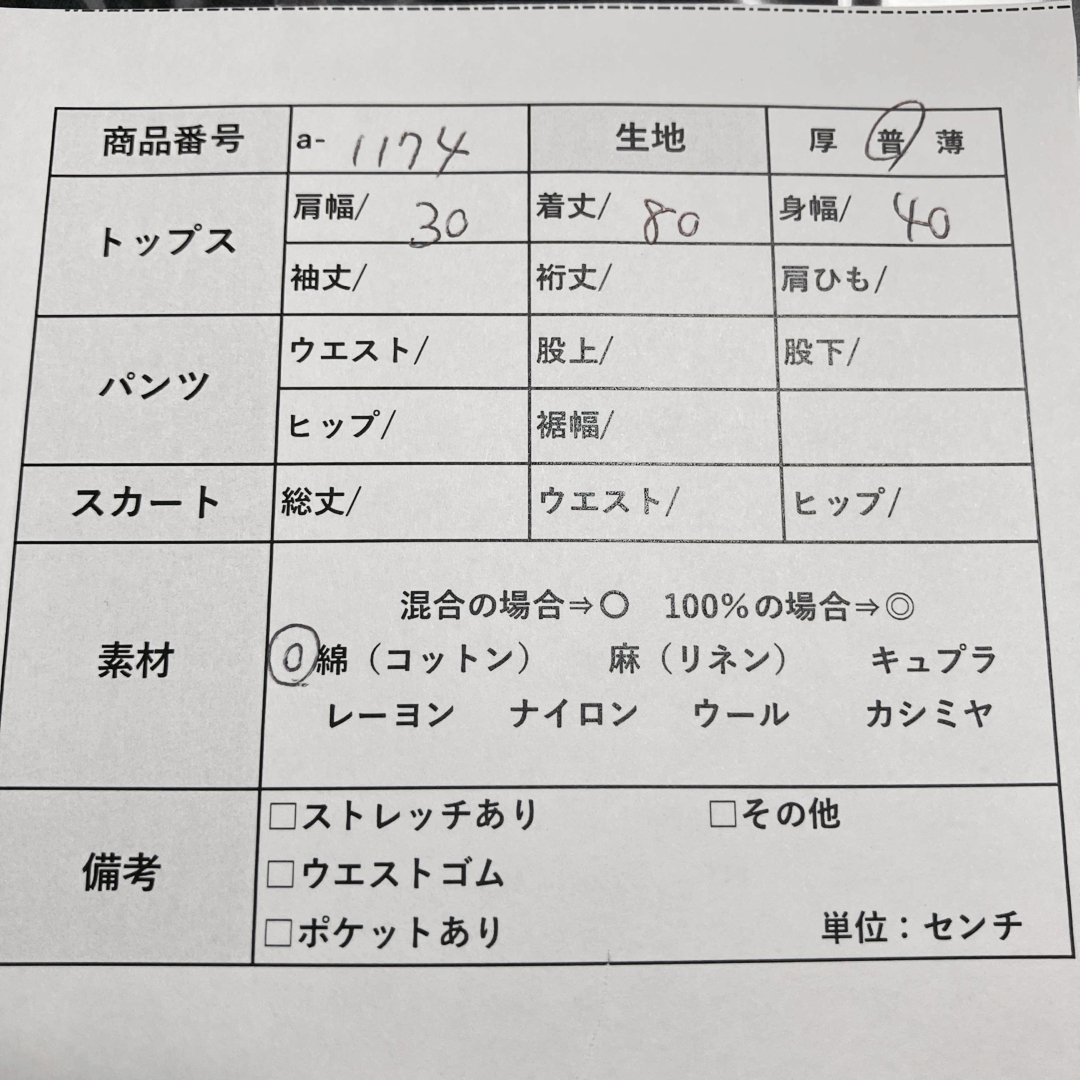 商品番号 a- 1174 生地 厚 普 薄
トップス 肩幅/ 30 着丈/ 80 身幅/ 40
袖丈/ 裄丈/ 肩ひも/
パンツ ウエスト/ 股上/ 股下/
ヒップ/ 裾幅/
スカート 総丈/ ウエスト/ ヒップ/
混合の場合⇒〇 100%の場合⇒◎
素材 ◎綿（コットン） 麻（リネン） キュプラ
レーヨン ナイロン ウール カシミヤ
□ストレッチあり □その他
備考 □ウエストゴム
□ポケットあり 単位：センチ